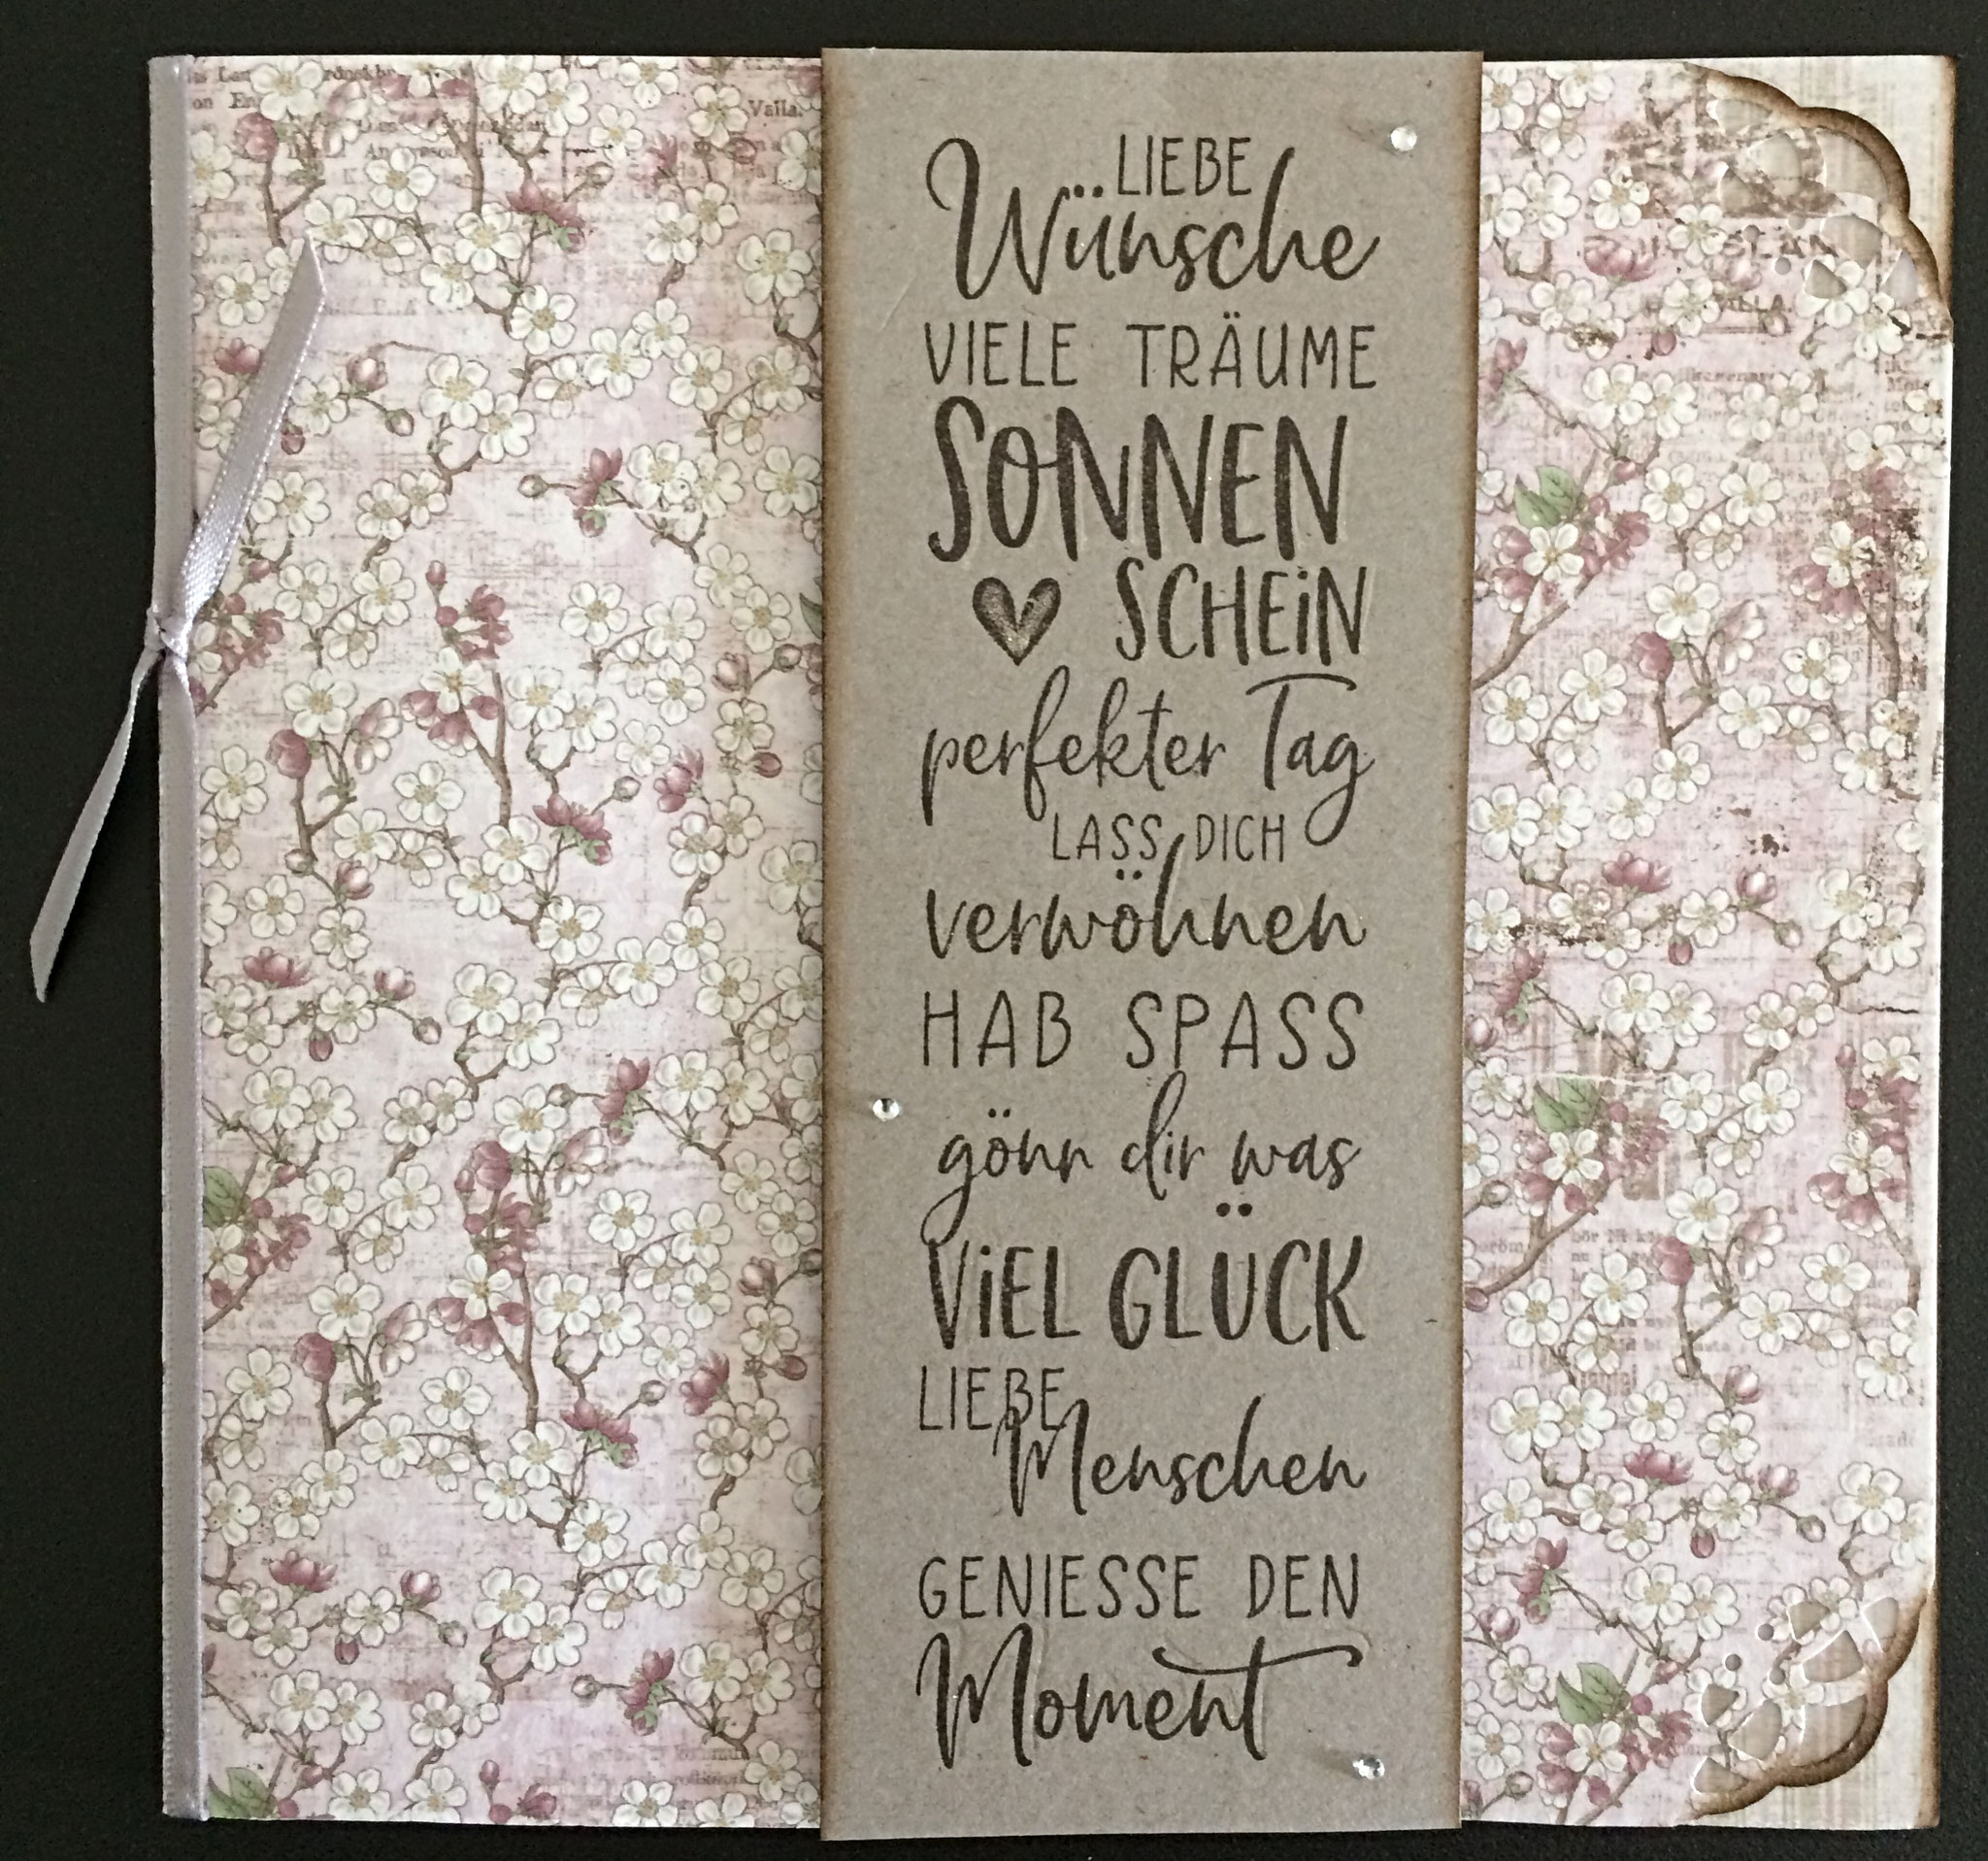 LIEBE
Wünsche
VIELE TRÄUME
SONNEN
SCHEiN
perfekter Tag
LASS DICH
verwöhnen
HAB SPASS
gönn dir was
ViEL GLÜCK
LIEBE
Menschen
GENIESSE DEN
Moment